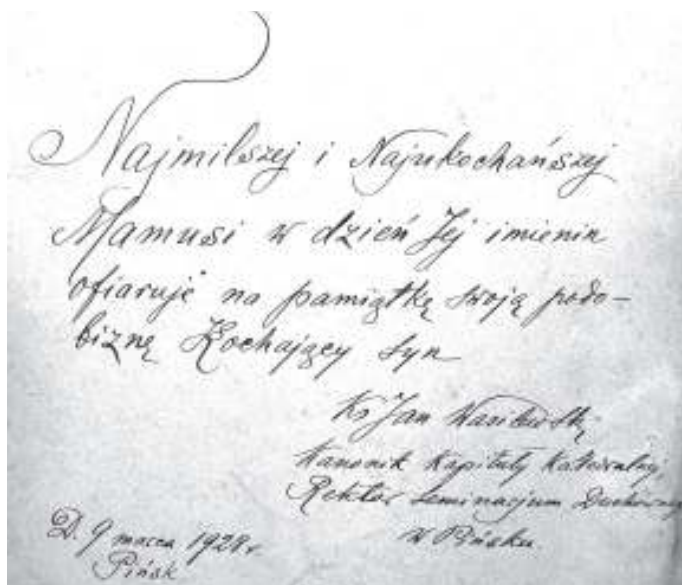 Najmilszej i Najukochańszej
Mamusi w dzień Jej imienin
ofiaruję na pamiątkę swoją podo-
biznę Kochający syn
Ks Jan Wasilewski
Kanonik Kapituły Katedralnej
Rektor Seminarjum Duchownego
w Pińsku.
D. 9 marca 1928 r.
Pińsk